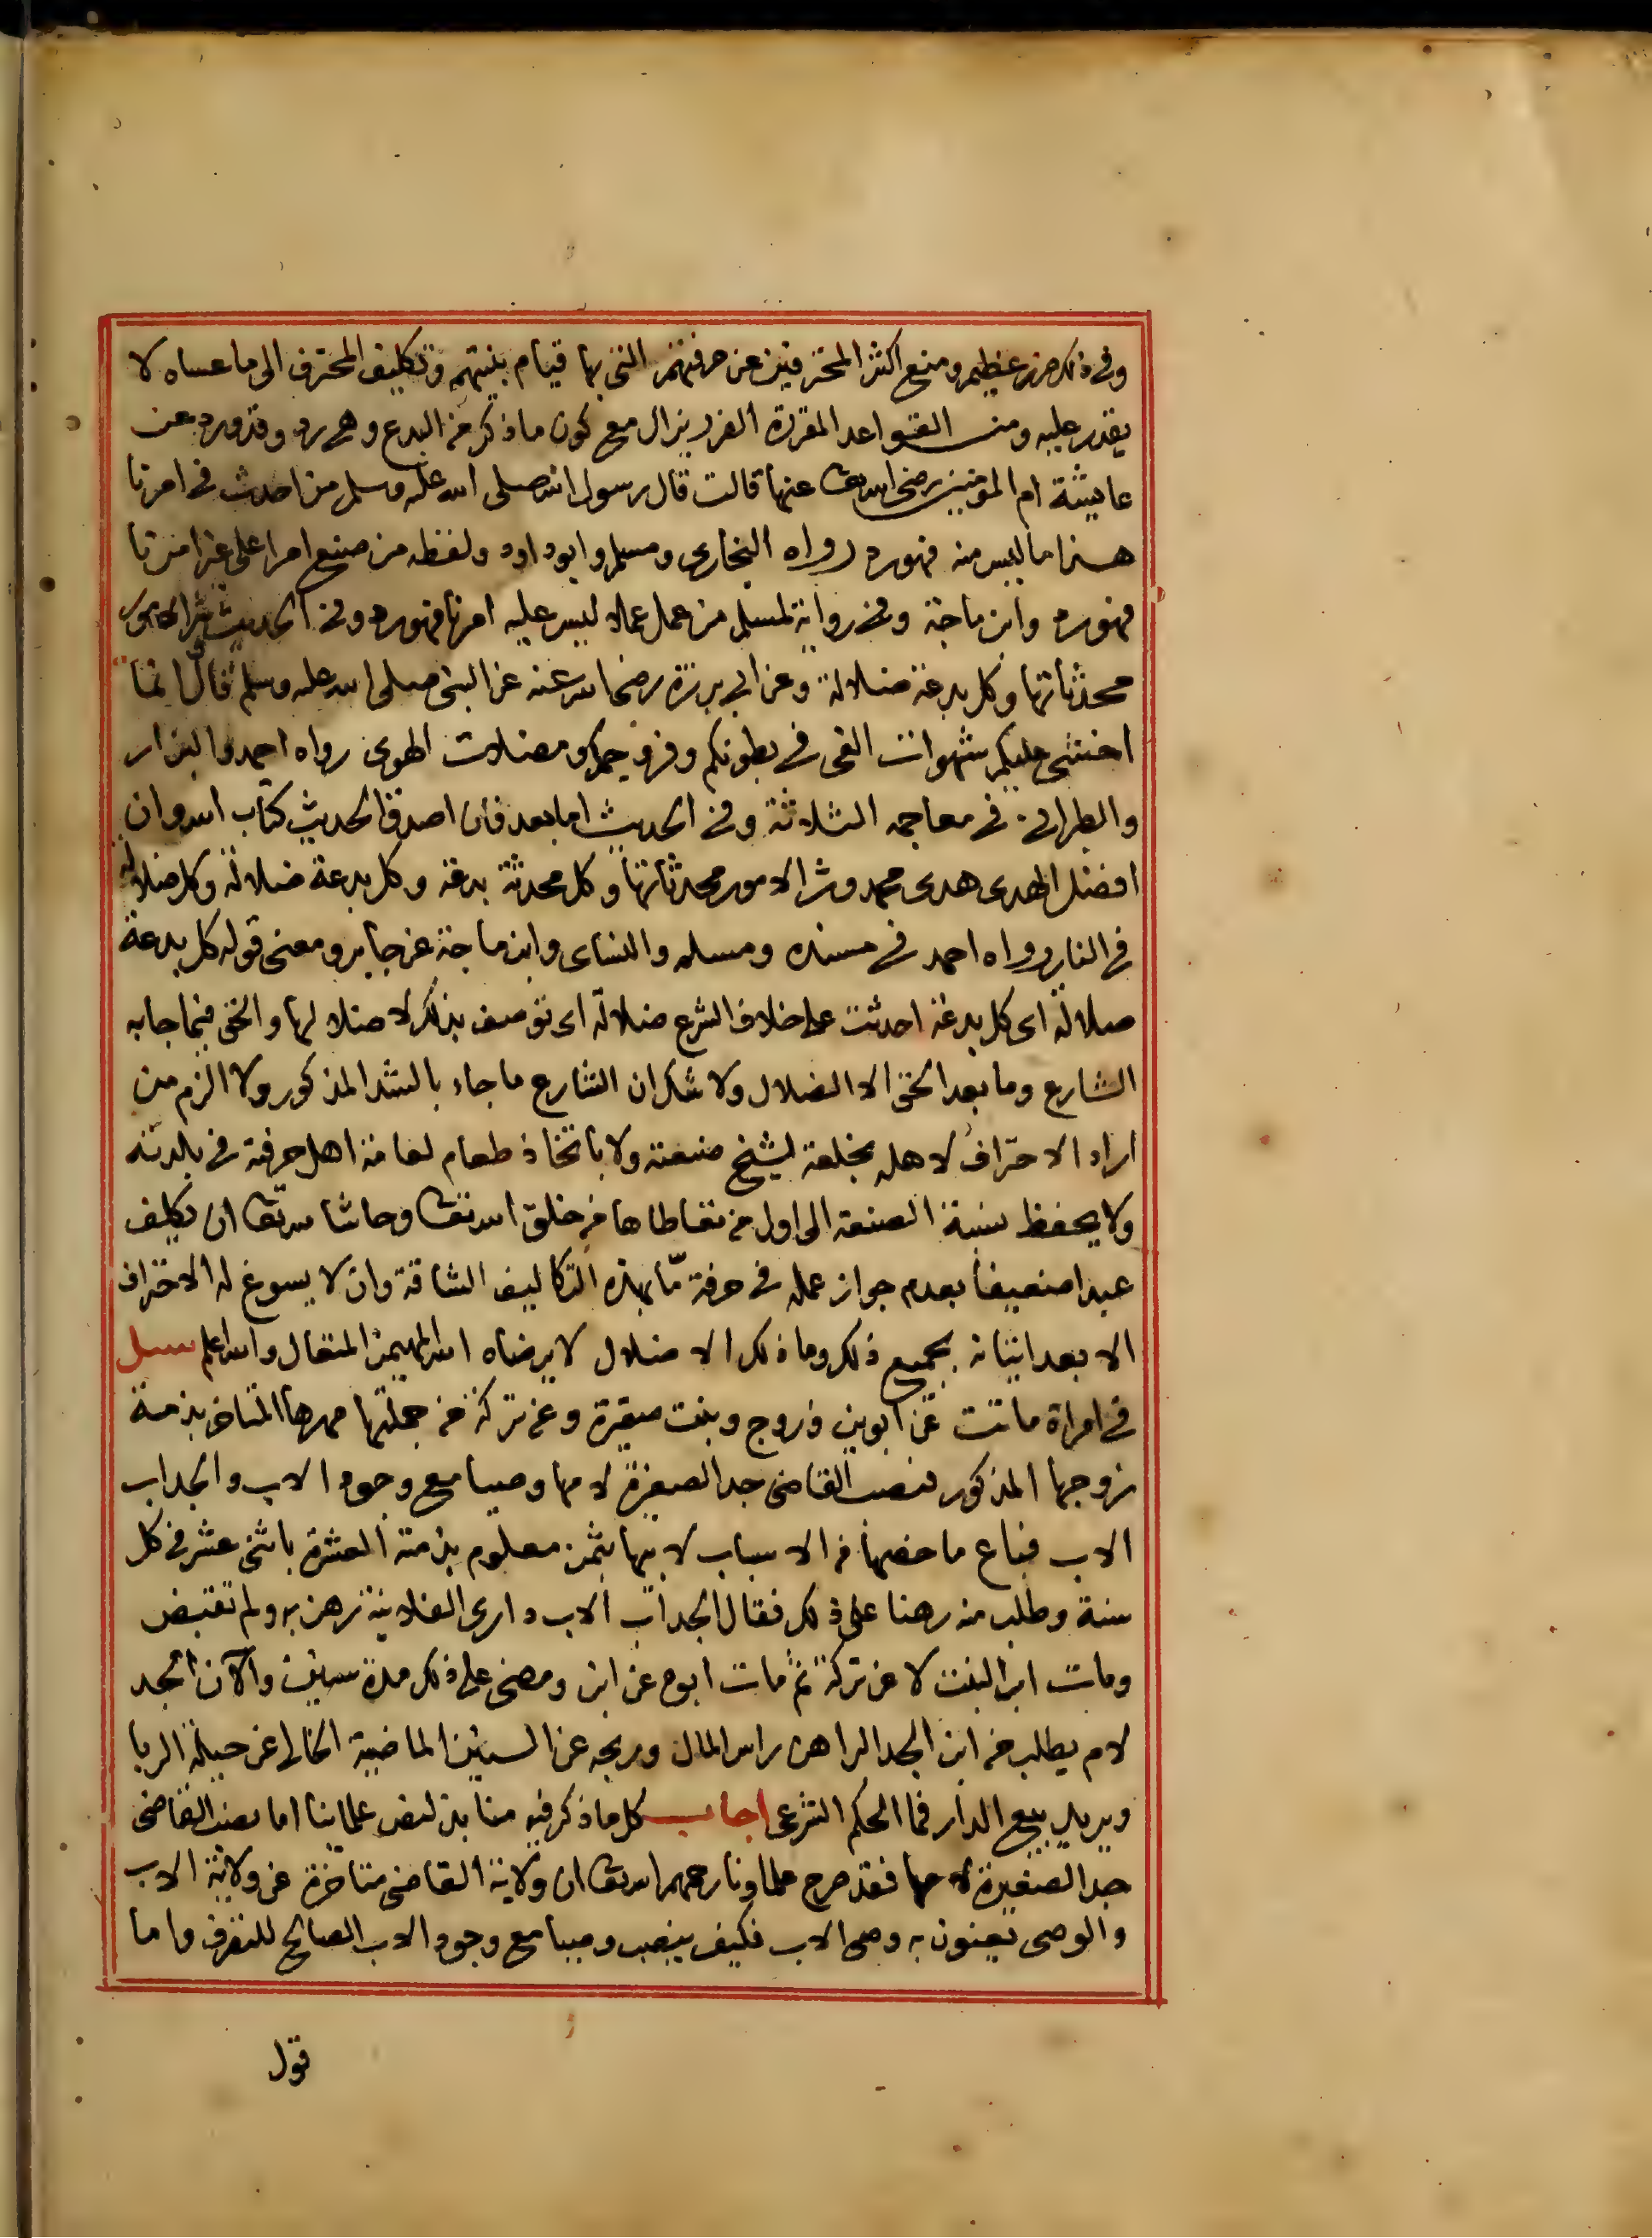 وفى ذلك ضرر عظيم ومنع اكثر المحترفين عن حرفتهم التى بها قيام بنيتهم وتكليف المحترف الى ما عساه لا
يقدر عليه ومن القواعد المقررة الضرر يزال مع كون ما ذكر من البدع وهى رد وقد ورد عن
عايشة ام المومنين رضى الله تعالى عنها قالت قال رسول الله صلى الله عليه وسلم من احدث فى امرنا
هذا ما ليس منه فهو رد رواه البخارى ومسلم وابو داود ولفظه من صنع امرا على غير امرنا
فهو رد وابن ماجة وفى رواية لمسلم من عمل عملا ليس عليه امرنا فهو رد وفى الحديث شر الامور
محدثاتها وكل بدعة ضلالة وعن ابى برزة رضى الله عنه عن النبى صلى الله عليه وسلم قال انما
اخشى عليكم شهوات الغى فى بطونكم وفروجكم ومضلات الهوى رواه احمد والبزار
والطبرانى فى معاجمه الثلاثة وفى الحديث اما بعد فان اصدق الحديث كتاب الله وان
افضل الهدى هدى محمد وشر الامور محدثاتها وكل محدثة بدعة وكل بدعة ضلالة وكل ضلالة
فى النار رواه احمد فى مسنده ومسلم والنساى وابن ماجة عن جابر ومعنى قوله كل بدعة
ضلالة اى كل بدعة احدثت على خلاف الشرع ضلالة اى توصف بذلك لاضلالها والحق فيما جا به
الشارع وما بعد الحق الا الضلال ولا شك ان الشارع ما جاء بالشد المذكور ولا الزم من
اراد الاحتراف لاهله بخلعة لشيخ صنعته ولا باتخاذ طعام لعامة اهل حرفته فى بلدته
ولا يحفظ نسبة الصنعة الى اول من تعاطاها من خلق الله تعالى وحاشا لله تعالى ان يكلف
عبدا ضعيفا بعدم جواز عمله فى حرفة مّا بهذه التكاليف الشاقة وان لا يسوغ له الاحتراف
الا بعد اتيانه بجميع ذلك وما ذلك الا ضلال لا يرضاه الله المهيمن المتعال والله اعلم سىل
فى امراة ماتت عن ابوين وزوج وبنت صغيرة وعن تركة من جملتها مهرها المتاخر بذمة
زوجها المذكور فنصب القاضى جد الصغيرة لامها وصيا مع وجود الاب والجد اب
الاب فباع ما خصها من الاسباب لابيها بثمن معلوم بذمته العشرة باثنى عشر فى كل
سنة وطلب منه رهنا على ذلك فقال الجد اب الاب دارى الفلانية رهن به ولم تقبض
ومات ابو البنت لا عن تركة ثم مات ابوه عن ابن ومضى على ذلك مدة سنين والآن الجد
لام يطلب من ابن الجد الراهن راس المال وربحه عن السنين الماضية الخالى عن حيلة الربا
ويريد بيع الدار فما الحكم الشرعى اجاب كل ما ذكر فيه منابذ لنص علمائنا اما نصب القاضى
جد الصغيرة لامها فقد صرح علماونا رحمهم الله تعالى ان ولاية القاضى متاخرة عن ولاية الاب
والوصى يعنون به وصى الاب فكيف ينصب وصيا مع وجود الاب الصالح للتصرف واما
قول